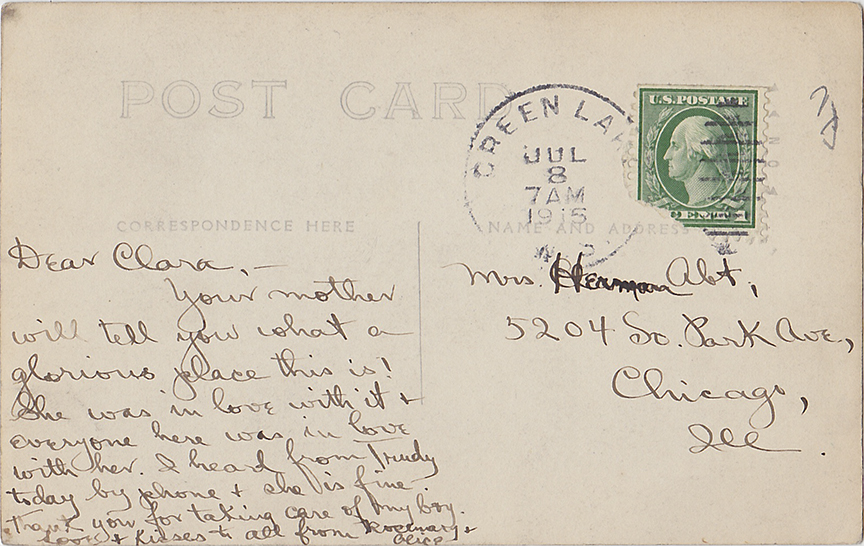 POST CARD
GREEN LAKE
JUL
8
7AM
1915
WIS.
U.S. POSTAGE
CORRESPONDENCE HERE
NAME AND ADDRESS
Dear Clara,—
Your mother
will tell you what a
glorious place this is!
She was in love with it +
everyone here was in love
with her. I heard from Trudy
today by phone + she is fine.
Thank you for taking care of my boy.
Love + kisses to all from Rosemary +
Alice
Mrs. Herman Abt,
5204 So. Park Ave,
Chicago,
Ill.